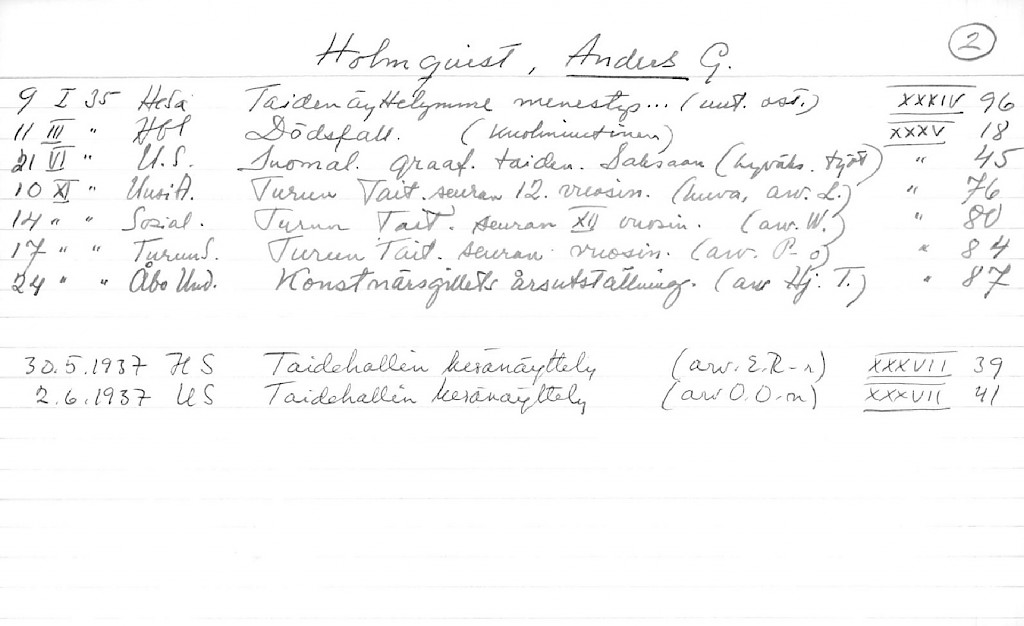 Holmquist, Anders G. 2
9 I 35 Hesa Taidenäyttelymme menestys... (uut. ost.) XXXIV 96
11 III " Hbl Dödsfall. (kuolinuutinen) XXXV 18
21 VI " U.S. Suomal. graaf. taiden. Saksaan (hyväks. työt) " 45
10 XI " Uusi A. Turun Tait. seuran 12. vuosin. (kuva, arv. L.) " 76
14 " " Sosial. Turun Tait. seuran XII vuosin. (arv. W.) " 80
17 " " TurunS. Turun Tait. seuran vuosin. (arv. P-o) " 84
24 " " Åbo Und. Konstnärsgillets årsutställning. (arv Hj. T.) " 87
30.5.1937 HS Taidehallin kesänäyttely (arv. E.R-r) XXXVII 39
2.6.1937 US Taidehallin kesänäyttely (arv O.O-n) XXXVII 41